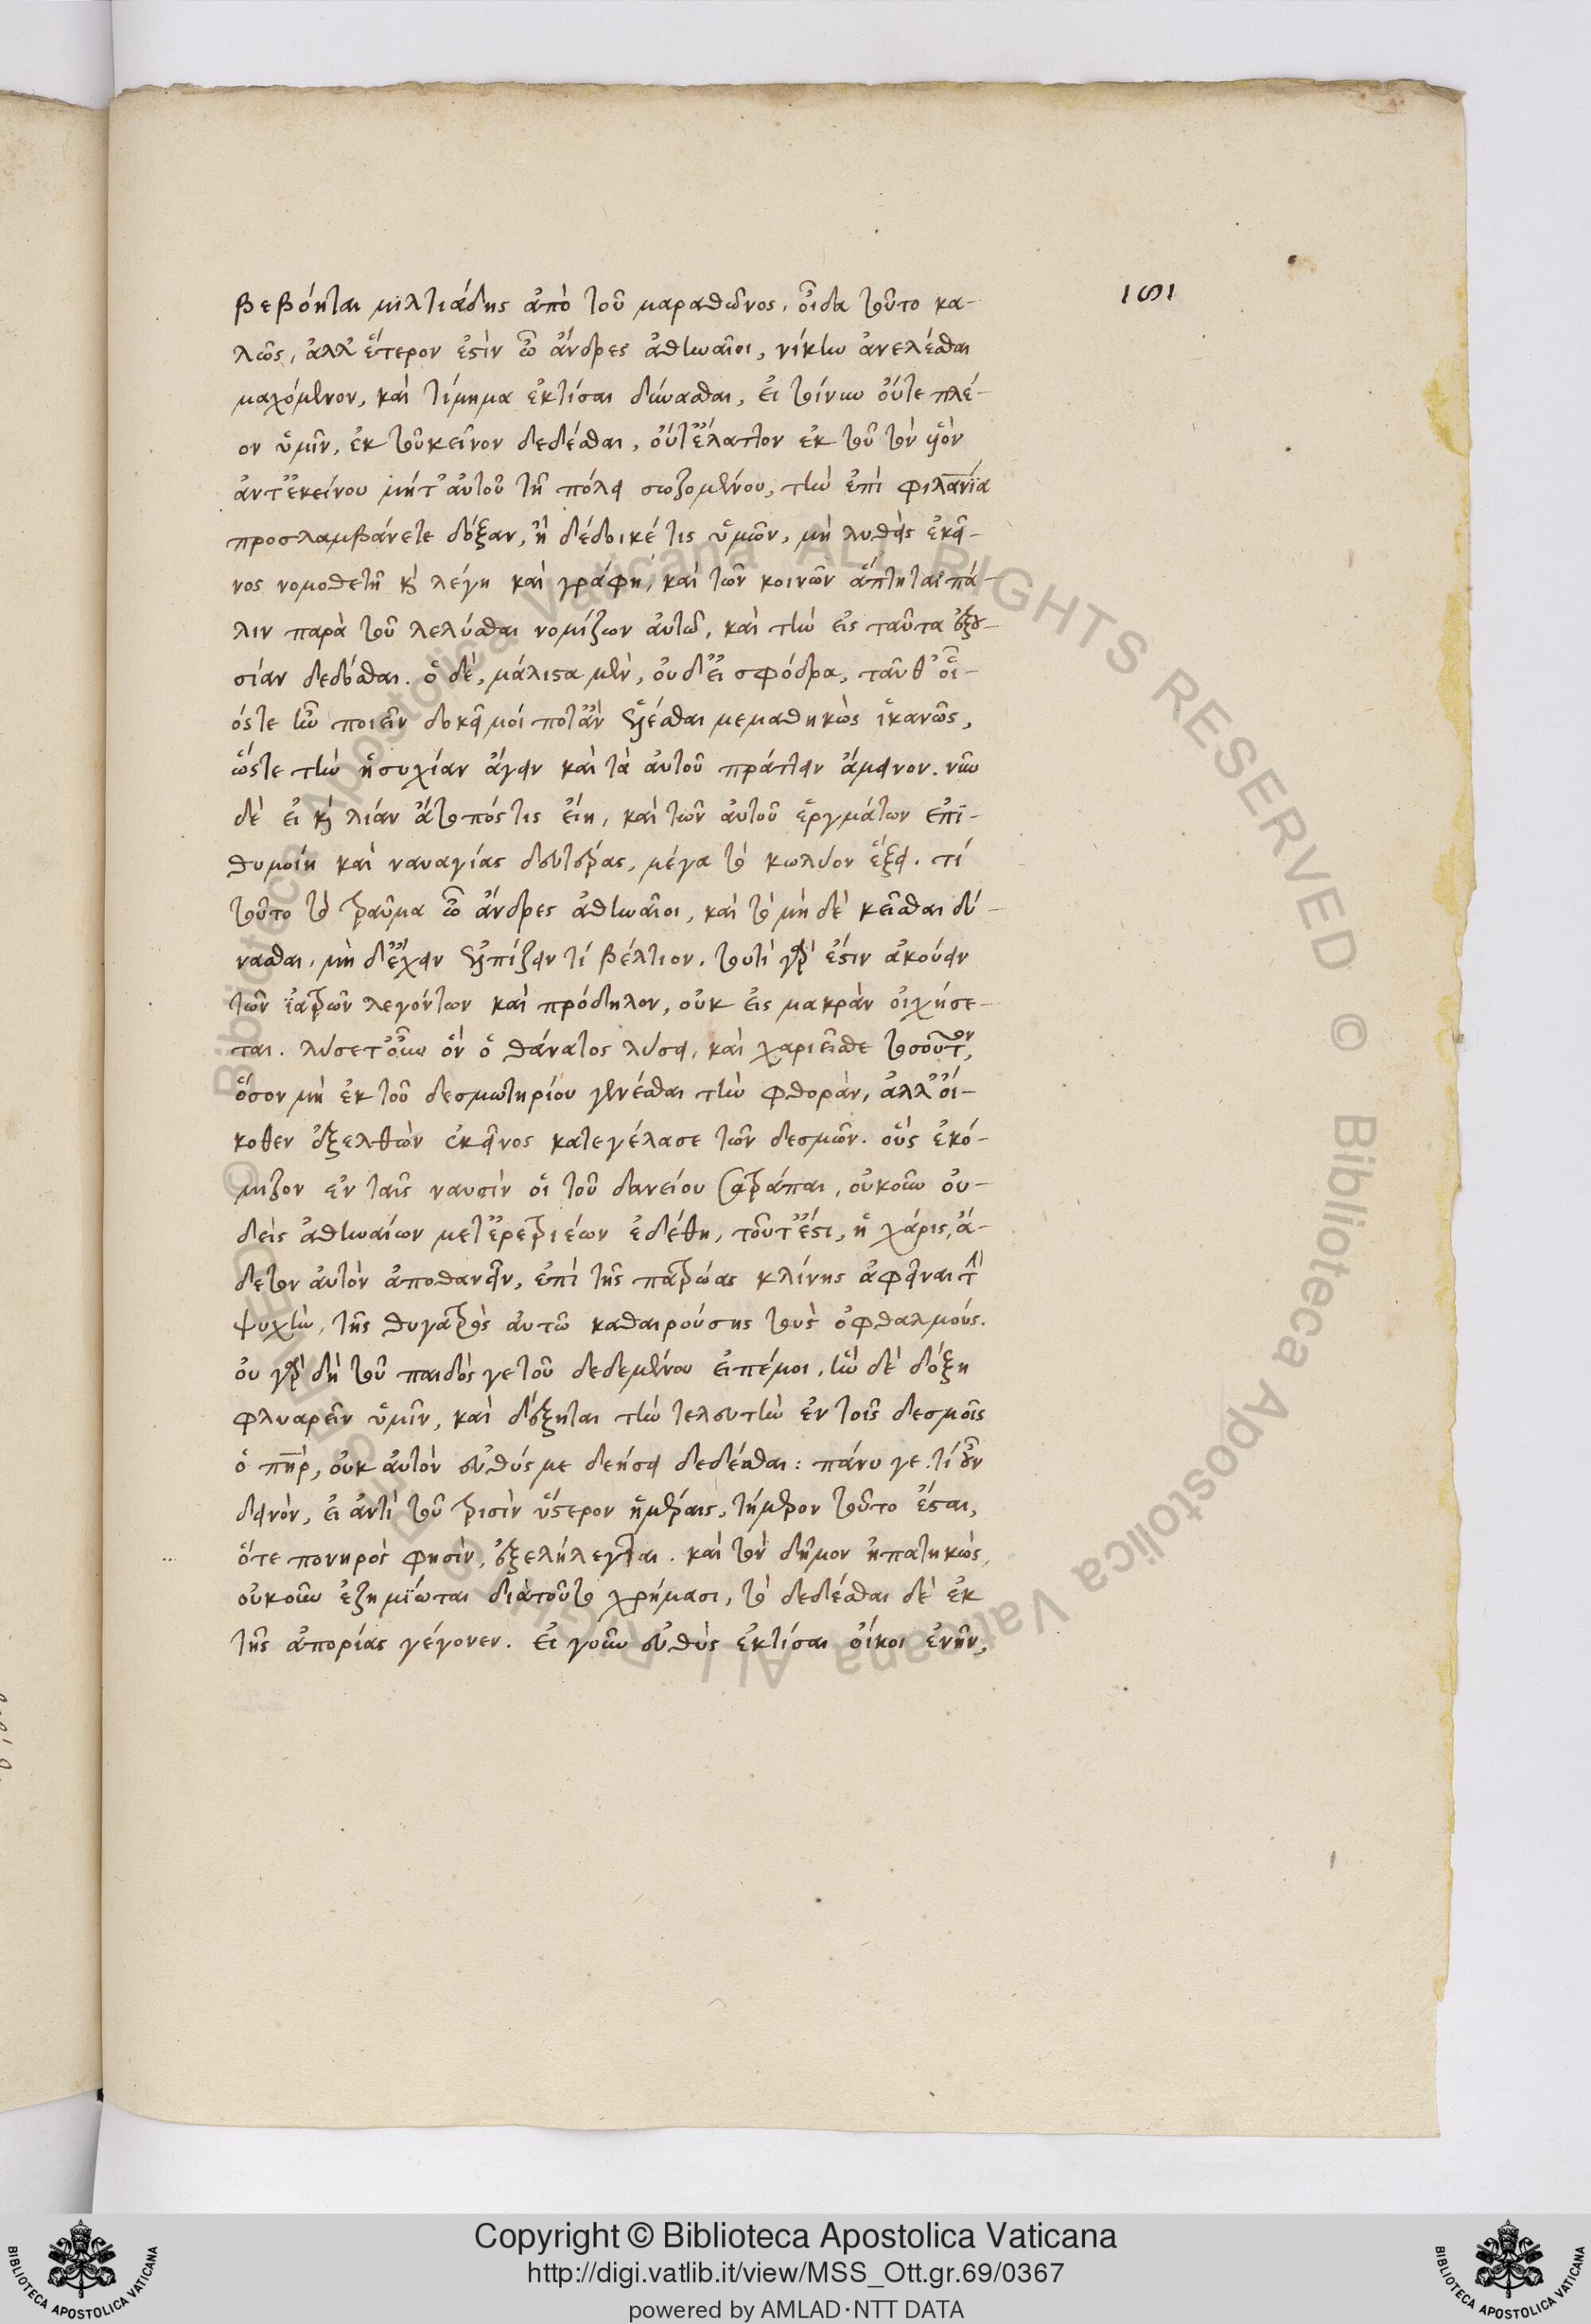 151
βεβόηται μιλτιάδης ἀπὸ τοῦ μαραθῶνος. οἶδα τοῦτο κα-
λῶς, ἀλλ' ἕτερον ἐστὶν ὦ ἄνδρες ἀθηναῖοι, νίκην ἀνελέσθαι
μαχόμενον, καὶ τίμημα ἐκτίσαι δύνασθαι, εἰ τοίνυν οὔτε πλέ-
ον ὑμῖν, ἐκ τοῦ κεῖνον δεδέσθαι, οὔτ' ἔλαττον ἐκ τοῦ τὸν υἱὸν
ἀντ' ἐκείνου μήτ' αὐτοῦ τῇ πόλει σωζομένου, τὴν ἐπὶ φιλανίᾳ
προσλαμβάνετε δόξαν, ἢ δέδοικέ τις ὑμῶν, μὴ λυθεὶς ἐκεῖ-
νος νομοθετῇ καὶ λέγῃ καὶ γράφῃ, καὶ τῶν κοινῶν ἅπτηται πά-
λιν παρὰ τοῦ λελύσθαι νομίζων αὐτῷ, καὶ τὴν εἰς ταῦτα ἐξου-
σίαν δεδόσθαι. ὁ δὲ, μάλιστα μὲν, οὐδ' εἰ σφόδρα, ταῦθ' οἷ-
ός τε ἦν ποιεῖν δοκεῖ μοί ποτ' ἂν ἑλέσθαι μεμαθηκὼς ἱκανῶς,
ὥστε τὴν ἡσυχίαν ἄγειν καὶ τὰ αὑτοῦ πράττειν ἄμεινον. νῦν
δὲ εἰ καὶ λιάν ἄτοπός τις εἴη, καὶ τῶν αὐτοῦ ἑργμάτων ἐπι-
θυμοίη καὶ ναυαγίας δευτέρας, μέγα τὸ κωλύον ἕξει. τί
τοῦτο τὸ τραῦμα ὦ ἄνδρες ἀθηναῖοι, καὶ τὸ μὴ δὲ κεῖσθαι δύ-
νασθαι. μὴ δ' ἔχειν ἐλπίζειν τί βέλτιον. τουτὶ γάρ ἐστιν ἀκούειν
τῶν ἰατρῶν λεγόντων καὶ πρόδηλον, οὐκ εἰς μακρὰν οἰχήσε-
ται. λύσετ' οὖν ὃν ὁ θάνατος λύσει, καὶ χαριεῖσθε τοσοῦτον,
ὅσον μὴ ἐκ τοῦ δεσμωτηρίου γενέσθαι τὴν φθορὰν, ἀλλ' οἴ-
κοθεν ἐξελθὼν ἐκεῖνος κατεγέλασε τῶν δεσμῶν. οὓς ἐκό-
μιζον ἐν ταῖς ναυσὶν οἱ τοῦ δανείου σατράπαι, οὐκοῦν οὐ-
δεὶς ἀθηναίων μετ' ἐρετριέων ἐδέθη, τοῦτ' ἔστι, ἡ χάρις, ἄ-
δετον αὐτὸν ἀποθανεῖν, ἐπὶ τῆς πατρῴας κλίνης ἀφεῖναι τὴν
ψυχὴν, τῆς θυγατρὸς αὐτῷ καθαιρούσης τοὺς ὀφθαλμούς.
οὐ γὰρ δὴ τοῦ παιδός γε τοῦ δεδεμένου εἰπέ μοι. ἢν δὲ δόξῃ
φλυαρεῖν ὑμῖν, καὶ δέξηται τὴν τελευτὴν ἐν τοῖς δεσμοῖς
ὁ πηρ, οὐκ αὐτὸν εὐθύς με δεήσει δεδέσθαι: πάνυ γε. τί οὖν
δεινὸν, εἰ ἀντὶ τοῦ τρισὶν ὕστερον ἡμέραις, τήμερον τοῦτο ἔσται,
ὅτε πονηρὸς φησὶν, ἐξελήλεγκται. καὶ τὸν δῆμον ἠπατηκὼς,
οὐκοῦν ἐζημίωται διὰ τοῦτο χρήμασι, τὸ δεδέσθαι δὲ ἐκ
τῆς ἀπορίας γέγονεν. εἰ γοῦν εὐθὺς ἐκτίσαι οἴκοι ἐνῆν,
© Biblioteca Apostolica Vaticana ALL RIGHTS RESERVED
© Biblioteca Apostolica Vaticana ALL RIGHTS RESERVED
Copyright © Biblioteca Apostolica Vaticana
http://digi.vatlib.it/view/MSS_Ott.gr.69/0367
powered by AMLAD·NTT DATA
BIBLIOTECA APOSTOLICA VATICANA
BIBLIOTECA APOSTOLICA VATICANA